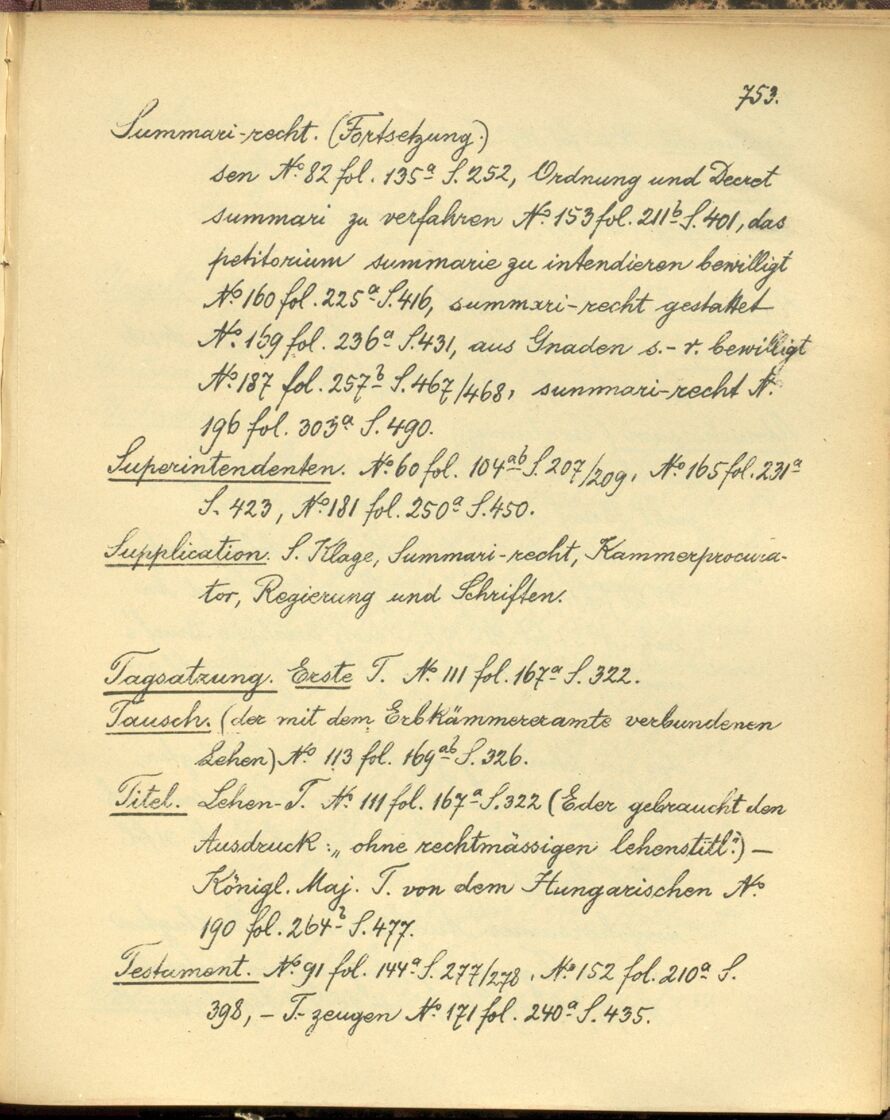 753.
Summari-recht. (Fortsetzung.)
sen Nº 82 fol. 135ª S. 252, Ordnung und Decret
summari zu verfahren Nº 153 fol. 211ᵇ S. 401, das
petitorium summarie zu intendieren bewilligt
Nº 160 fol. 225ª S. 416, summari-recht gestattet
Nº 169 fol. 236ª S. 431, aus Gnaden s.-r. bewilligt
Nº 187 fol. 257ᵇ S. 467/468, summari-recht Nº
196 fol. 303ª S. 490.
Superintendenten. Nº 60 fol. 104ªᵇ S. 207/209, Nº 165 fol. 231ª
S. 423, Nº 181 fol. 250ª S. 450.
Supplication. S. Klage, Summari-recht, Kammerprocura-
tor, Regierung und Schriften.
Tagsatzung. Erste T. Nº 111 fol. 167ª S. 322.
Tausch. (der mit dem Erbkämmereramte verbundenen
Lehen) Nº 113 fol. 169ªᵇ S. 326.
Titel. Lehen-T. Nº 111 fol. 167ª S. 322 (Eder gebraucht den
Ausdruck: „ohne rechtmässigen lehenstitl.") –
Königl. Maj. T. von dem Hungarischen Nº
190 fol. 264ᵇ S. 477.
Testament. Nº 91 fol. 144ª S. 277/278, Nº 152 fol. 210ª S.
398, – T.-zeugen Nº 171 fol. 240ª S. 435.